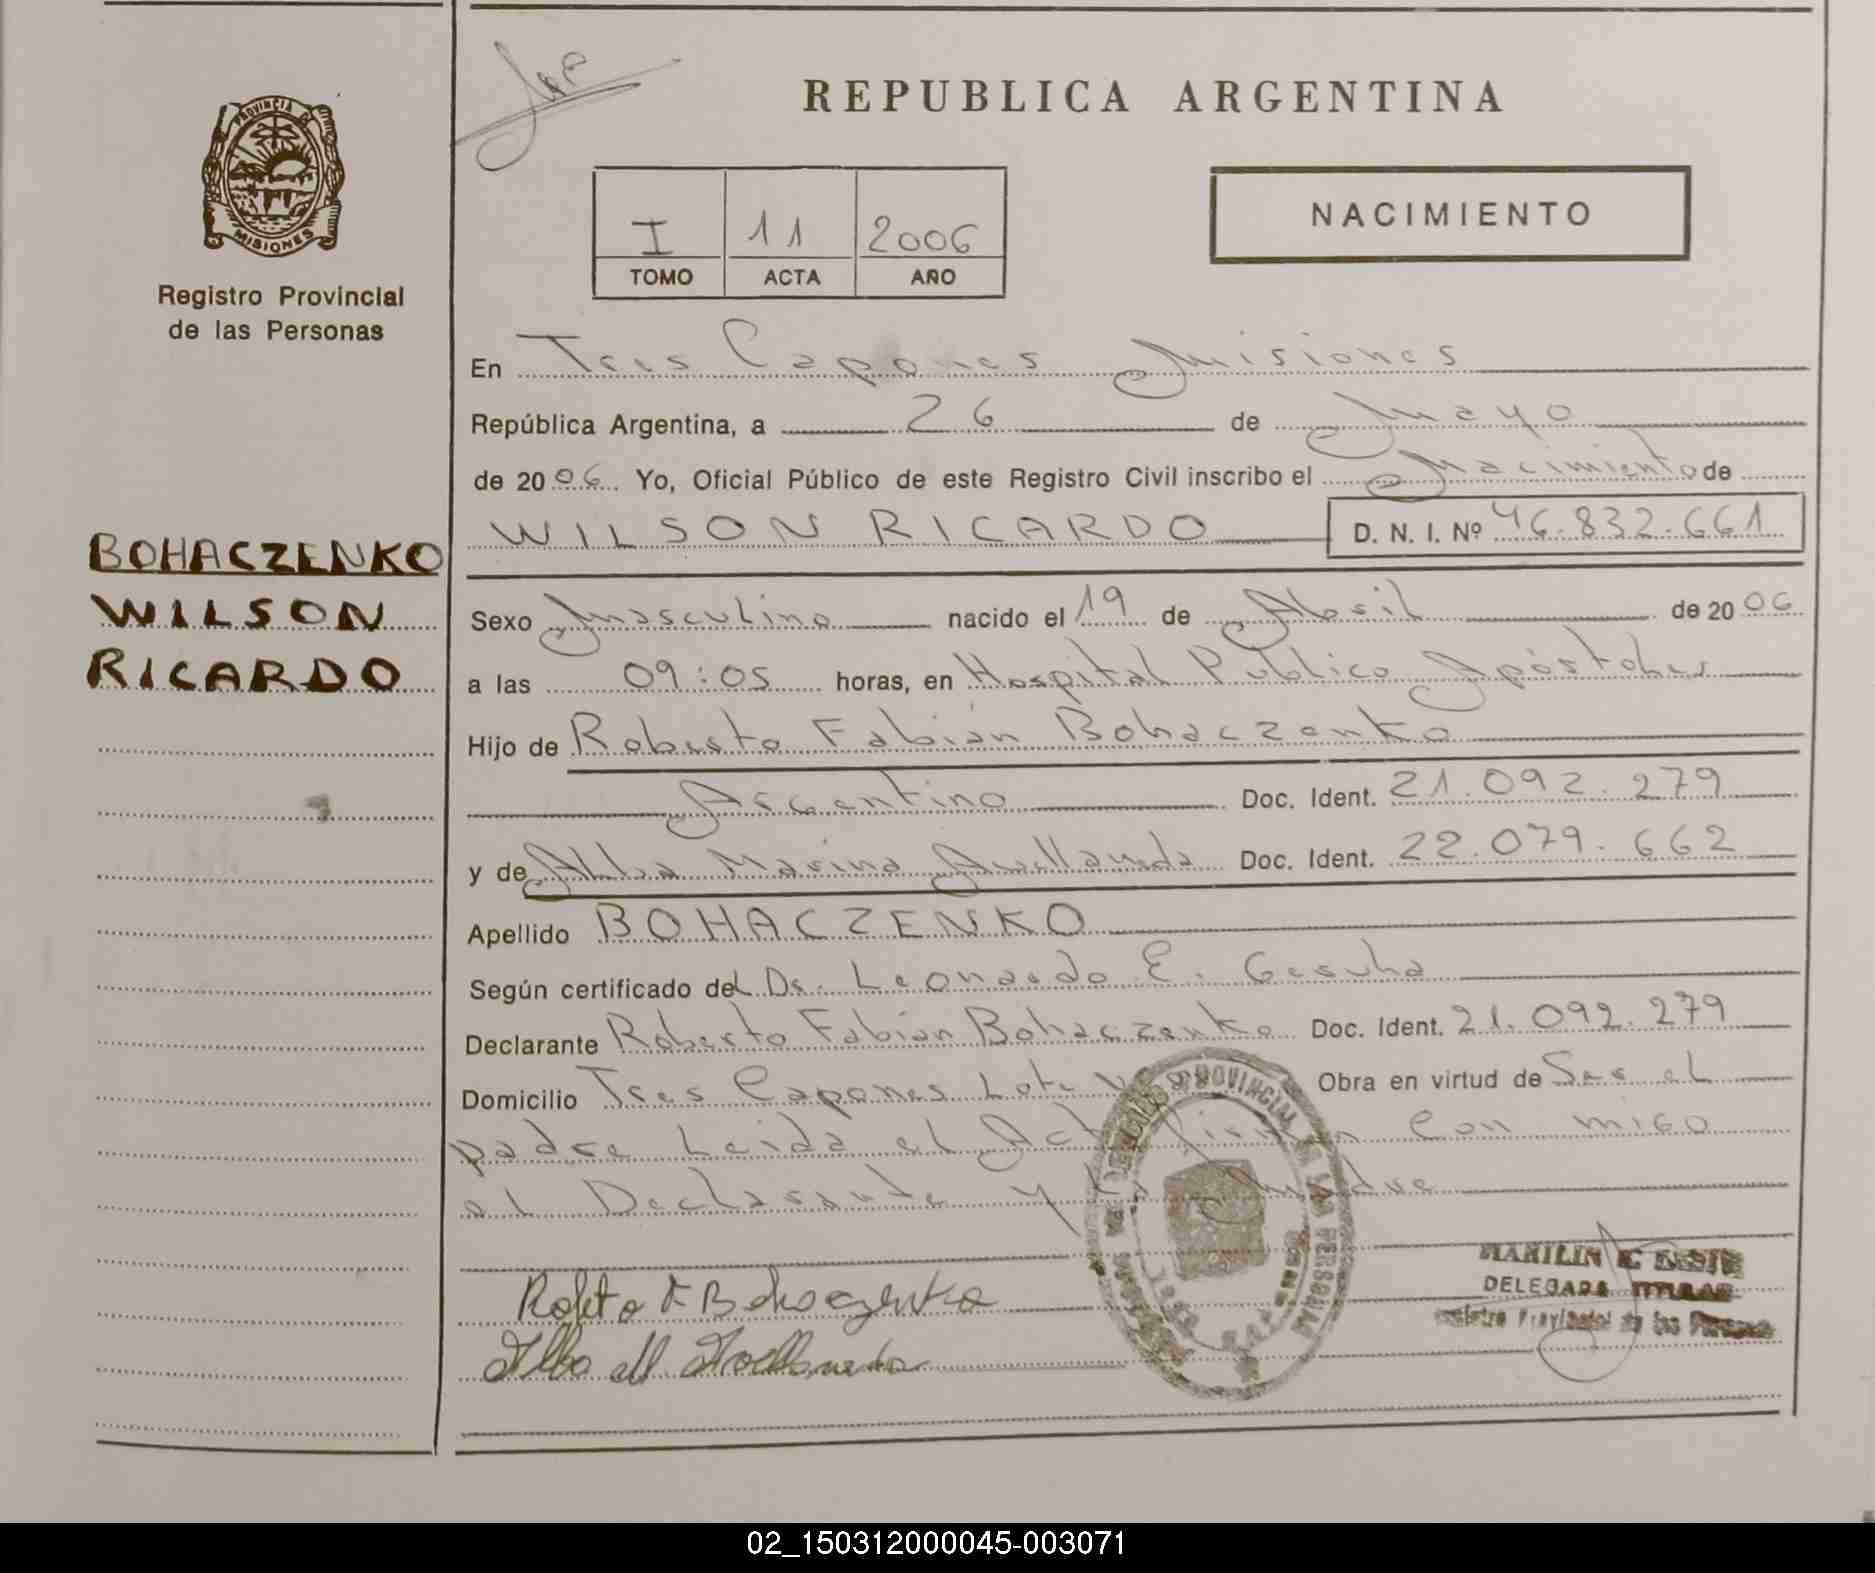 REPUBLICA ARGENTINA
PROVINCIA DE
MISIONES
Registro Provincial
de las Personas
I 11 2006
TOMO ACTA AÑO
NACIMIENTO
En Tres Capones Misiones
República Argentina, a 26 de Mayo
de 2006 Yo, Oficial Público de este Registro Civil inscribo el Nacimiento de
WILSON RICARDO D. N. I. Nº 46.832.661
BOHACZENKO
WILSON
RICARDO
Sexo Masculino nacido el 19 de Abril de 2006
a las 09:05 horas, en Hospital Público Apóstoles
Hijo de Roberto Fabián Bohaczenko
Argentino Doc. Ident. 21.092.279
y de Alba Marina Avellaneda Doc. Ident. 22.079.662
Apellido BOHACZENKO
Según certificado del Dr. Leonardo E.
Declarante Roberto Fabián Bohaczenko Doc. Ident. 21.092.279
Domicilio Tres Capones Lote Obra en virtud de Ser el
padre Leida el Acta firman con migo
el Declarante y la Madre
Roberto F Bohaczenko
Alba M. Avellaneda
DELEGADA TITULAR
Registro Provincial de las Personas
02_150312000045-003071